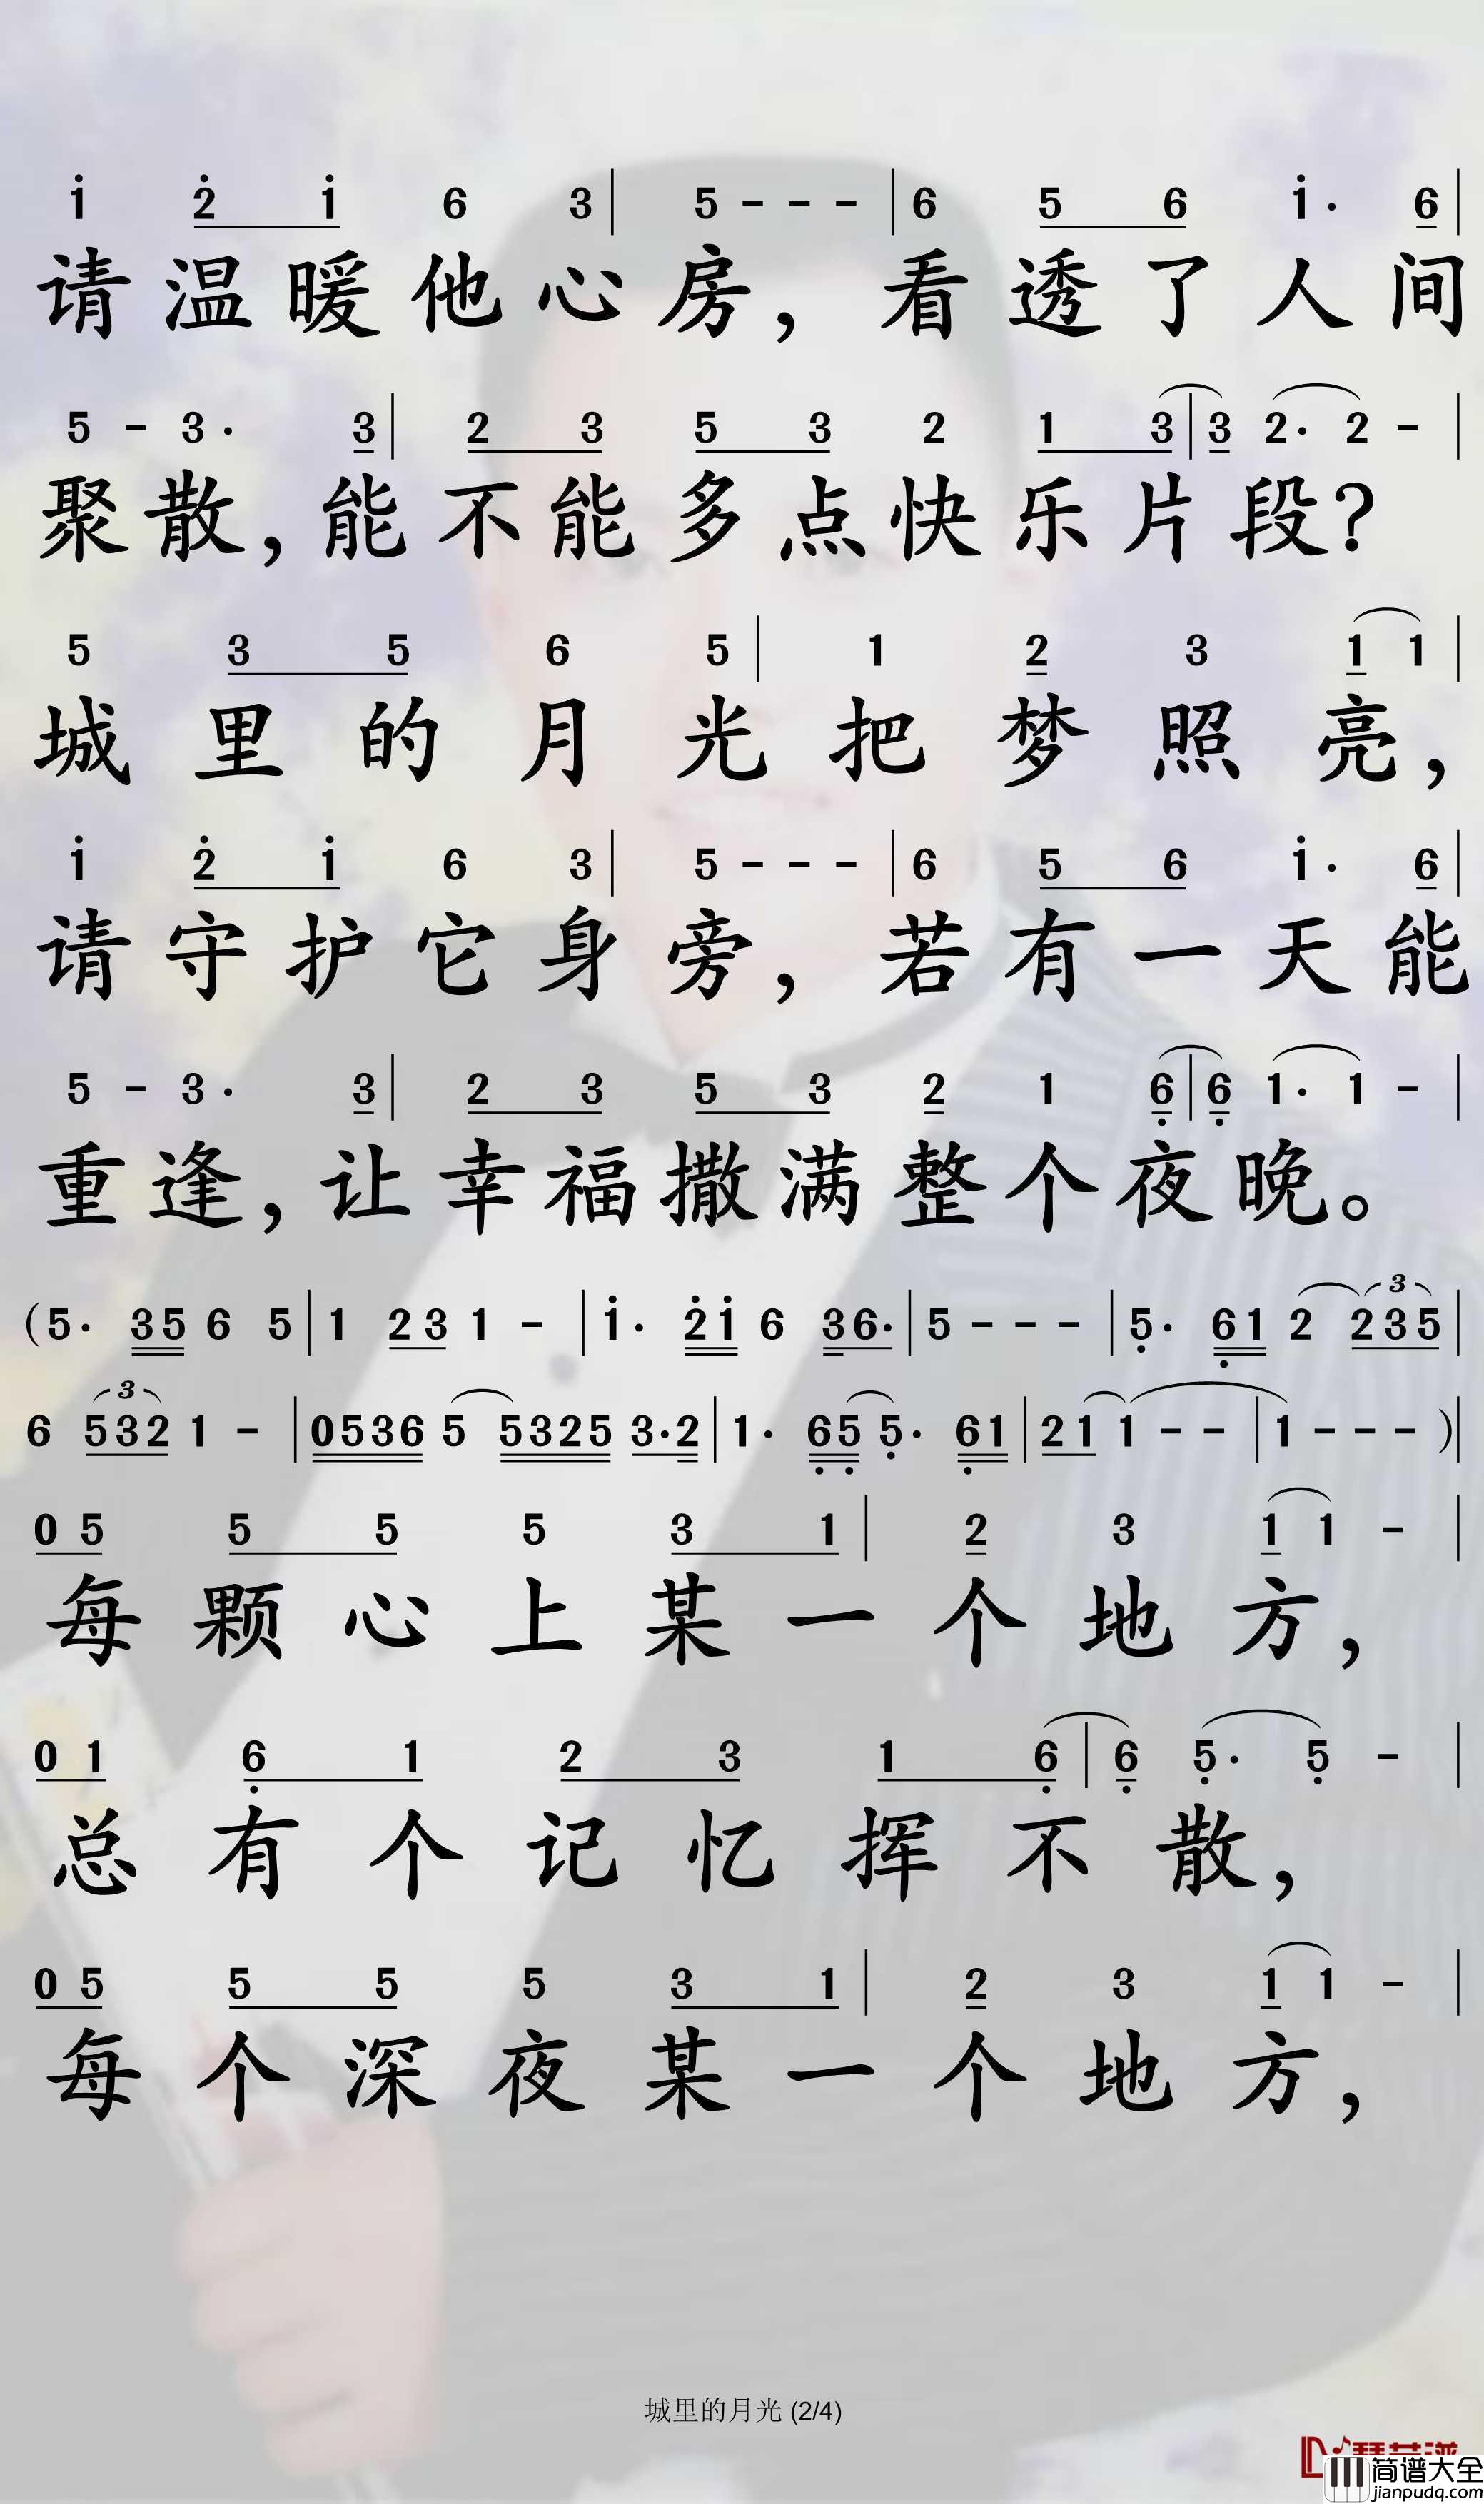 1 2 1 6 3 | 5 - - - | 6 5 6 1· 6 |
请温暖他心房，看透了人间
5 - 3· 3 | 2 3 5 3 2 1 3 | 3 2· 2 - |
聚散，能不能多点快乐片段？
5 3 5 6 5 | 1 2 3 1 1 |
城里的月光把梦照亮，
1 2 1 6 3 | 5 - - - | 6 5 6 1· 6 |
请守护它身旁，若有一天能
5 - 3· 3 | 2 3 5 3 2 1 6 | 6 1· 1 - |
重逢，让幸福撒满整个夜晚。
(5· 35 6 5 | 1 23 1 - | 1· 21 6 36· | 5 - - - | 5· 61 2 235 3 |
6 532 3 1 - | 0536 5 5325 3·2 | 1· 65 5· 61 | 21 1 - - | 1 - - - )|
0 5 5 5 5 3 1 | 2 3 1 1 - |
每颗心上某一个地方，
0 1 6 1 2 3 1 6 | 6 5· 5 - |
总有个记忆挥不散，
0 5 5 5 5 3 1 | 2 3 1 1 - |
每个深夜某一个地方，
城里的月光 (2/4)
简谱大全
jianpudq.com